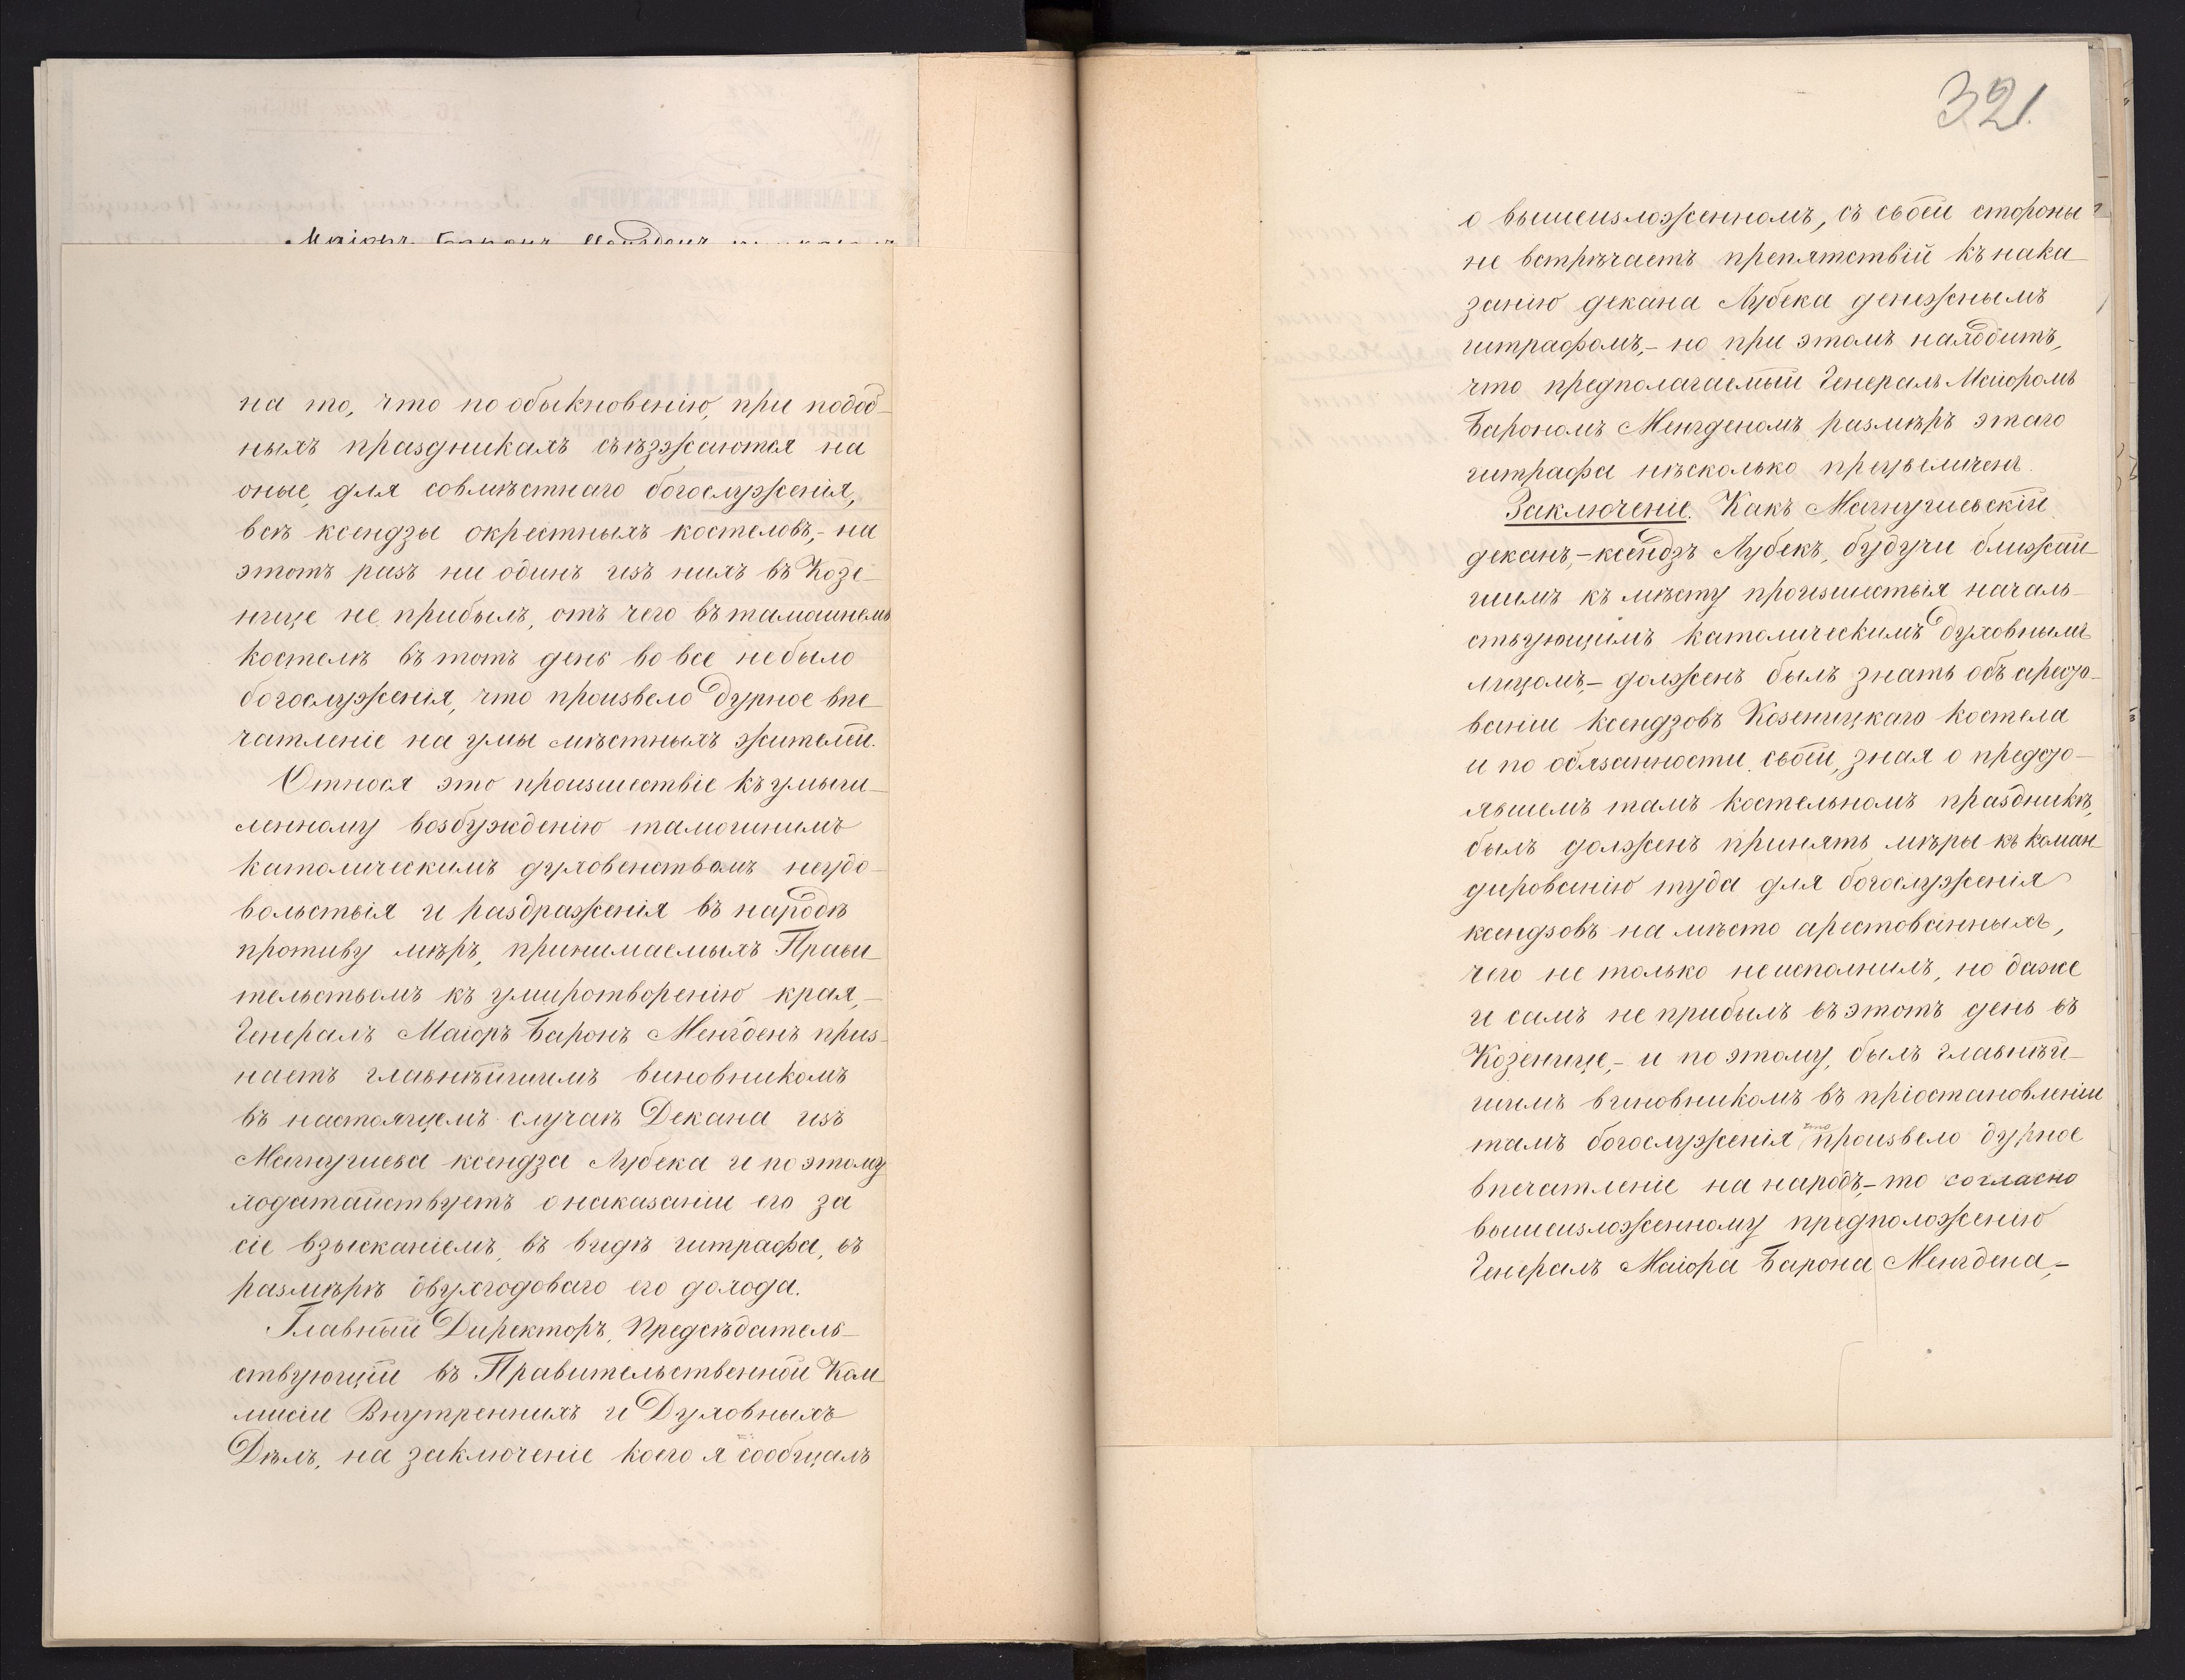 на то, что по обыкновенію, при подоб-
ныхъ праздникахъ съѣзжаются на
оные, для совмѣстнаго богослуженія,
всѣ ксендзы окрестныхъ костеловъ,- на
этотъ разъ ни одинъ изъ нихъ въ Козе-
нице не прибылъ, отъ чего въ тамошнемъ
костелѣ въ тотъ день вовсе небыло
богослуженія, что произвело дурное впе-
чатленіе на умы мѣстныхъ жителей.
Относя это происшествіе къ умыш-
ленному возбужденію тамошнимъ
католическимъ духовенствомъ неудо-
вольствія и раздраженія въ народѣ
противу мѣръ, принимаемыхъ Прави-
тельствомъ къ умиротворенію края,-
Генералъ Маіоръ Баронъ Менгденъ приз-
наетъ главнѣйшимъ виновникомъ
въ настоящемъ случаѣ Декана изъ
Магнушева ксендза Лубека и поэтому
ходатайствуетъ о наказаніи его за
сіе взысканіемъ, въ видѣ штрафа, въ
размѣрѣ двухгодоваго его дохода.
Главный Директоръ, Предсѣдатель-
ствующій въ Правительственной Ком-
мисіи Внутреннихъ и Духовныхъ
Дѣлъ, на заключеніе коего я сообщалъ
321.
о вышеизложенномъ, съ своей стороны
не встрѣчаетъ препятствій къ нака-
занію декана Лубека денежнымъ
штрафомъ,- но при этомъ находитъ,
что предполагаемый Генералъ Маіоромъ
Барономъ Менгденомъ размѣръ этаго
штрафа нѣсколько преувеличенъ.
Заключеніе. Какъ Магнушевскій
деканъ,- ксендзъ Лубекъ, будучи ближай-
шимъ къ мѣсту происшествія началь-
ствующимъ католическимъ духовнымъ
лицомъ,- долженъ былъ знать объ аресто-
ваніи ксендзовъ Козеницкаго костела
и по обязанности своей, зная о предсто-
явшемъ тамъ костельномъ праздникѣ,
былъ долженъ принять мѣры къ коман-
дированію туда для богослуженія
ксендзовъ на мѣсто арестованныхъ,
чего не только неисполнилъ, но даже
и самъ не прибылъ въ этотъ день въ
Козенице,- и поэтому, былъ главнѣй-
шимъ виновникомъ въ пріостановленіи
тамъ богослуженія что произвело дурное
впечатленіе на народъ,- то согласно
вышеизложенному предположенію
Генералъ Маіора Барона Менгдена,-